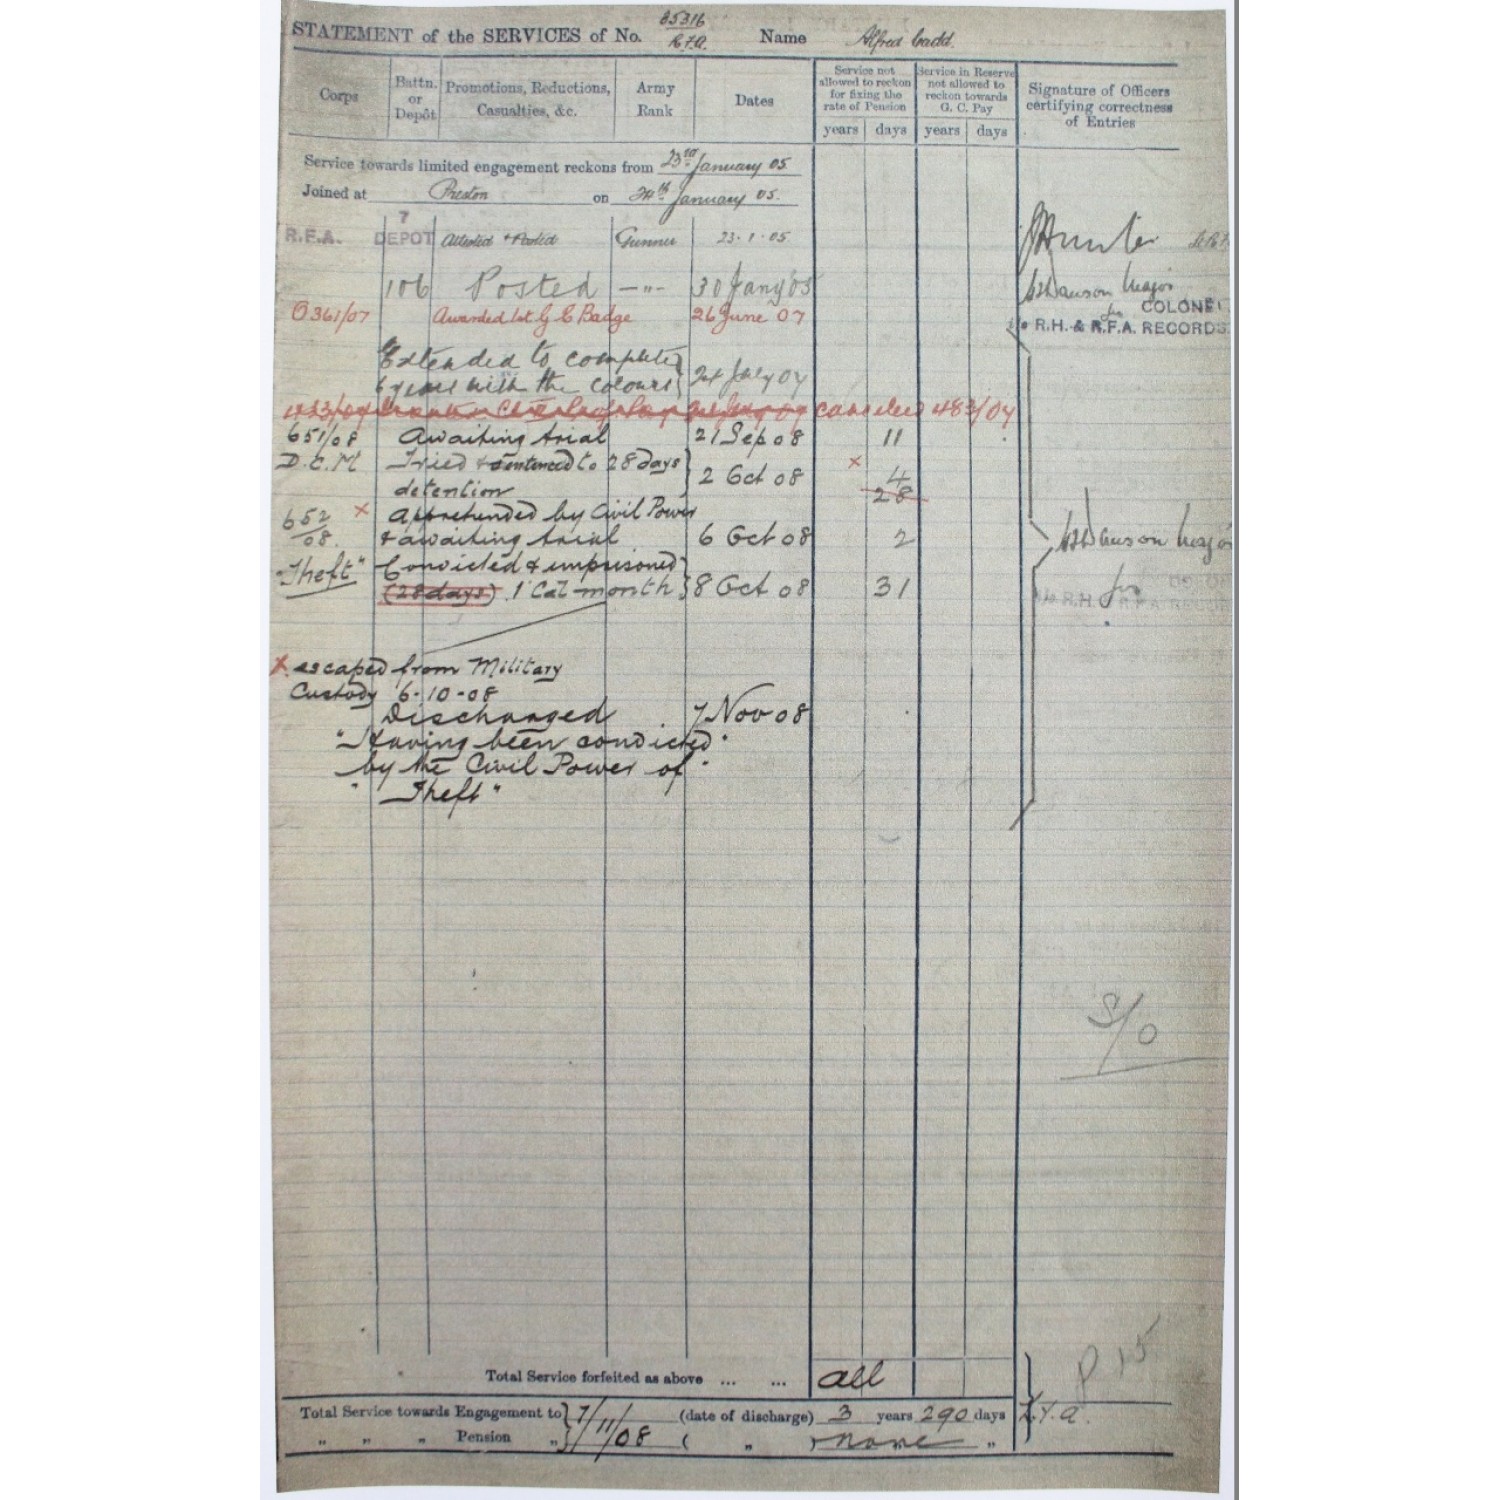 35316
STATEMENT of the SERVICES of No. R.F.A. Name Alfred Gadd.
Corps
Battn. or Depôt
Promotions, Reductions, Casualties, &c.
Army Rank
Dates
Service not allowed to reckon for fixing the rate of Pension
years days
Service in Reserve not allowed to reckon towards G. C. Pay
years days
Signature of Officers certifying correctness of Entries
Service towards limited engagement reckons from 23rd January 05
Joined at Preston on 24th January 05.
7
R.F.A. DEPOT Attested & Posted Gunner 23-1-05
106 Posted —"— 30 Jany 05
Dawson Major
COLONEL
for
i/c R.H. & R.F.A. RECORDS
0361/07 Awarded 1st G C Badge 26 June 07
Extended to complete
6 years with the colours 24 July 07
cancelled 483/07
651/08 Awaiting trial 21 Sep 08 11
D.C.M Tried & sentenced to 28 days
detention 2 Oct 08 x 4
28
652/08. x Apprehended by Civil Power
& awaiting trial 6 Oct 08 2
Dawson Major
for
i/c R.H. & R.F.A. RECORDS
"Theft" Convicted & imprisoned
(28 days) 1 Cal month 8 Oct 08 31
x escaped from Military
Custody 6-10-08
Discharged 7 Nov 08
"Having been convicted"
by the Civil Power of "
"Theft"
S/O
P 15
Total Service forfeited as above ... ... all
Total Service towards Engagement to 7/11/08 (date of discharge) 3 years 290 days
" " " Pension " ( " ) none "